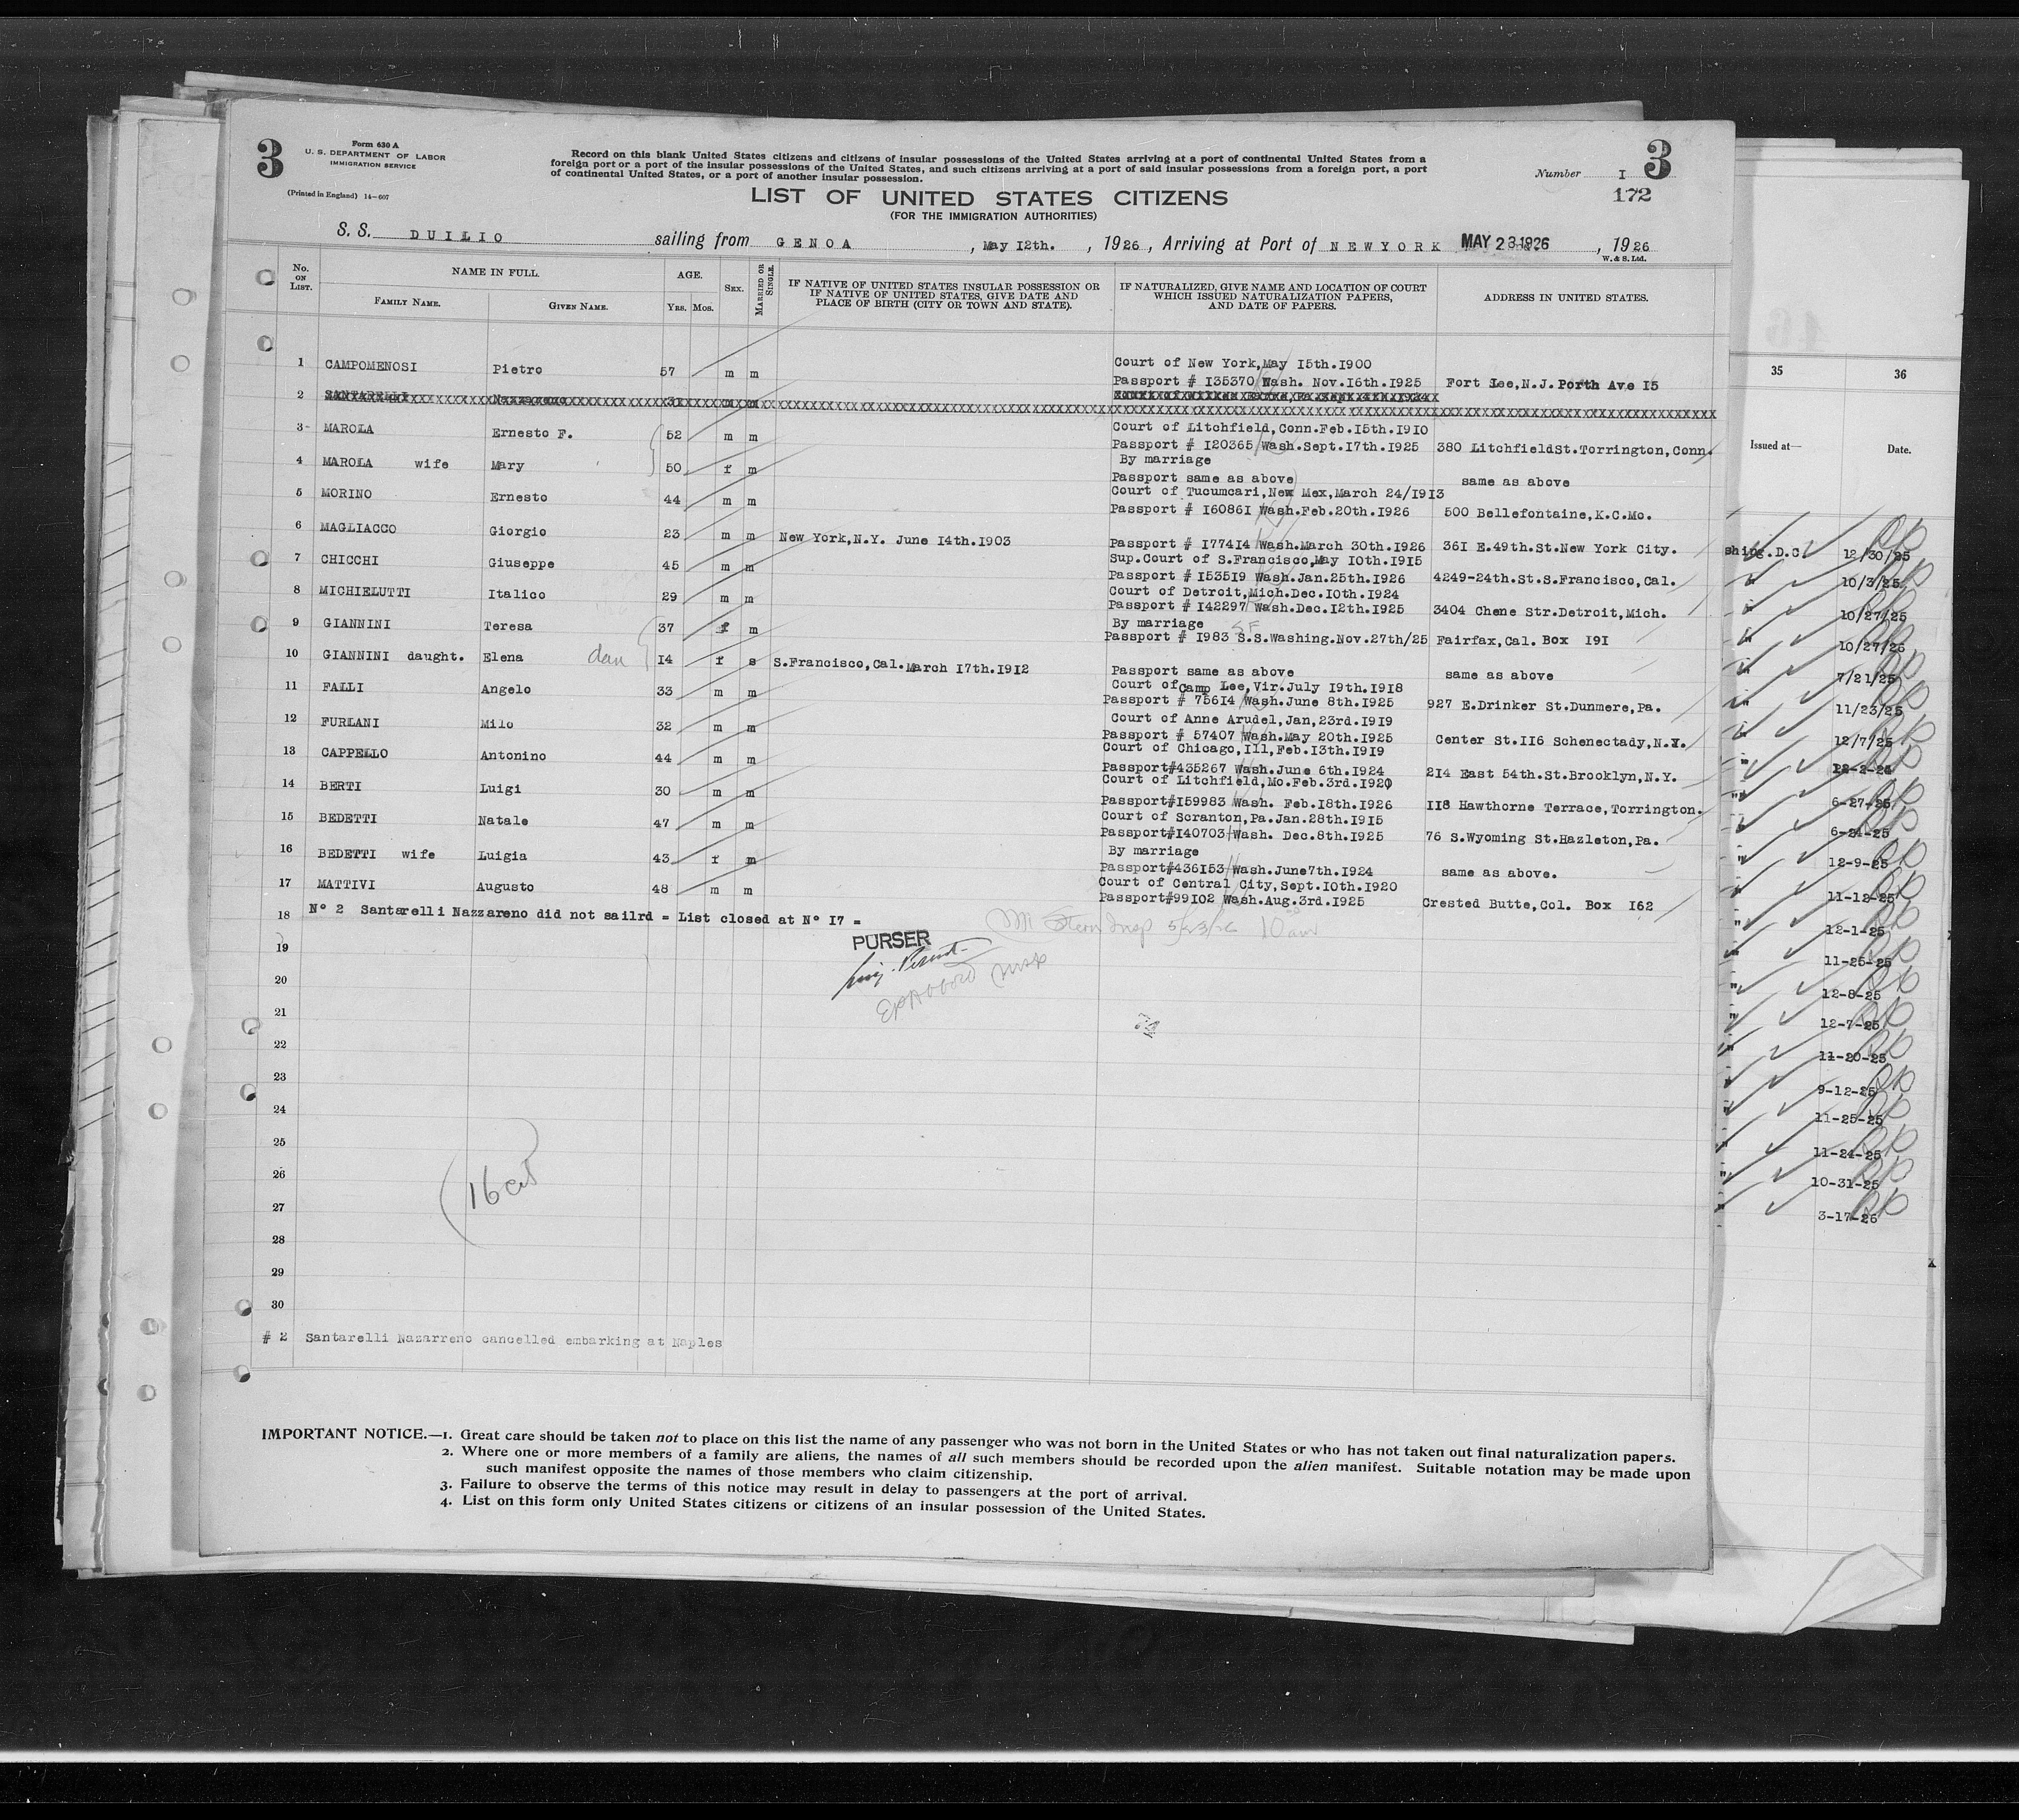 3
Form 630 A
U. S. DEPARTMENT OF LABOR
IMMIGRATION SERVICE
(Printed in England) 14—607
Record on this blank United States citizens and citizens of insular possessions of the United States arriving at a port of continental United States from a
foreign port or a port of the insular possessions of the United States, and such citizens arriving at a port of said insular possessions from a foreign port, a port
of continental United States, or a port of another insular possession.
Number I 3
172
LIST OF UNITED STATES CITIZENS
(FOR THE IMMIGRATION AUTHORITIES)
S. S. DUILIO sailing from GENOA, May I2th., 1926, Arriving at Port of NEWYORK MAY 23 1926, 1926
W. & S. Ltd.
No. ON LIST.
NAME IN FULL.
FAMILY NAME.
GIVEN NAME.
AGE.
YRS. MOS.
SEX.
MARRIED OR SINGLE.
IF NATIVE OF UNITED STATES INSULAR POSSESSION OR
IF NATIVE OF UNITED STATES, GIVE DATE AND
PLACE OF BIRTH (CITY OR TOWN AND STATE).
IF NATURALIZED, GIVE NAME AND LOCATION OF COURT
WHICH ISSUED NATURALIZATION PAPERS,
AND DATE OF PAPERS.
ADDRESS IN UNITED STATES.
1 CAMPOMENOSI Pietro 57 m m Court of New York,May I5th.I900
Passport # I35370 Wash. Nov.I6th.I925 Fort Lee,N.J. Porth Ave I5
2 SANTARELLI Nazzareno 31 m m
3 MAROLA Ernesto F. 52 m m Court of Litchfield,Conn.Feb.I5th.I9I0
Passport # I20365 Wash.Sept.I7th.I925 380 LitchfieldSt.Torrington,Conn.
4 MAROLA wife Mary 50 f m By marriage
Passport same as above same as above
5 MORINO Ernesto 44 m m Court of Tucumcari,New Mex,March 24/I9I3
Passport # I6086I Wash.Feb.20th.I926 500 Bellefontaine,K.C.Mo.
6 MAGLIACCO Giorgio 23 m m New York,N.Y. June I4th.I903
Passport # I774I4 Wash.March 30th.I926 36I E.49th.St.New York City.
7 CHICCHI Giuseppe 45 m m Sup.Court of S.Francisco,May I0th.I9I5
Passport # I535I9 Wash.Jan.25th.I926 4249-24th.St.S.Francisco,Cal.
8 MICHIELUTTI Italico 29 m m Court of Detroit,Mich.Dec.I0th.I924
Passport # I42297 Wash.Dec.I2th.I925 3404 Chene Str.Detroit,Mich.
9 GIANNINI Teresa 37 f m By marriage
SF
Passport # I983 S.S.Washing.Nov.27th/25 Fairfax,Cal. Box I9I
10 GIANNINI daught. Elena dau I4 f s S.Francisco,Cal.March I7th.I9I2
Passport same as above same as above
11 FALLI Angelo 33 m m Court of Camp Lee,Vir.July I9th.I9I8
Passport # 756I4 Wash.June 8th.I925 927 E.Drinker St.Dunmere,Pa.
12 FURLANI Milo 32 m m Court of Anne Arudel,Jan,23rd.I9I9
Passport # 57407 Wash.May 20th.I925 Center St.II6 Schenectady,N.Y.
13 CAPPELLO Antonino 44 m m Court of Chicago,Ill,Feb.I3th.I9I9
Passport#435267 Wash.June 6th.I924 2I4 East 54th.St.Brooklyn,N.Y.
14 BERTI Luigi 30 m m Court of Litchfield,Mo.Feb.3rd.I920
Passport#I59983 Wash. Feb.I8th.I926 II8 Hawthorne Terrace,Torrington.
15 BEDETTI Natale 47 m m Court of Scranton,Pa.Jan.28th.I9I5
Passport#I40703 Wash. Dec.8th.I925 76 S.Wyoming St.Hazleton,Pa.
16 BEDETTI wife Luigia 43 f m By marriage
Passport#436I53 Wash.June7th.I924 same as above.
17 MATTIVI Augusto 48 m m Court of Central City,Sept.I0th.I920
Passport#99I02 Wash.Aug.3rd.I925 Crested Butte,Col. Box I62
18 N° 2 Santarelli Nazzareno did not sailrd = List closed at N° I7 =
M Stern Insp 5/23/26 10 am
PURSER
19
20
21
22
23
24
25
26
27
28
29
30
16
# 2 Santarelli Nazarreno cancelled embarking at Naples
IMPORTANT NOTICE.—1. Great care should be taken not to place on this list the name of any passenger who was not born in the United States or who has not taken out final naturalization papers.
2. Where one or more members of a family are aliens, the names of all such members should be recorded upon the alien manifest. Suitable notation may be made upon
such manifest opposite the names of those members who claim citizenship.
3. Failure to observe the terms of this notice may result in delay to passengers at the port of arrival.
4. List on this form only United States citizens or citizens of an insular possession of the United States.
35 36
Issued at— Date.
shing.D.C. 12/30/25
10/3/25
10/27/25
10/27/25
7/21/25
11/23/25
12/7/25
12-2-24
6-27-25
6-24-25
12-9-25
11-12-25
12-1-25
11-25-25
12-8-25
12-7-25
11-20-25
9-12-25
11-25-25
11-24-25
10-31-25
3-17-26